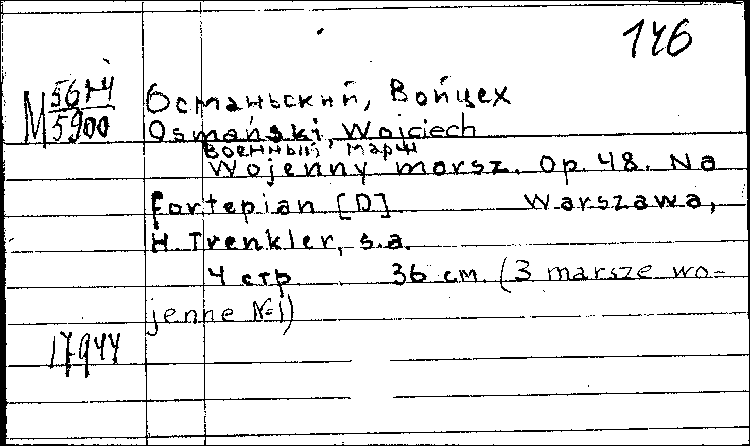 146
M 5674/5900
Османьский, Войцех
Osmański, Wojciech
Военный марш
Wojenny marsz. Op. 48. Na
fortepian [D] Warszawa,
H. Trenkler, s.a.
4 стр 36 см. (3 marsze wo-
jenne №1)
17944